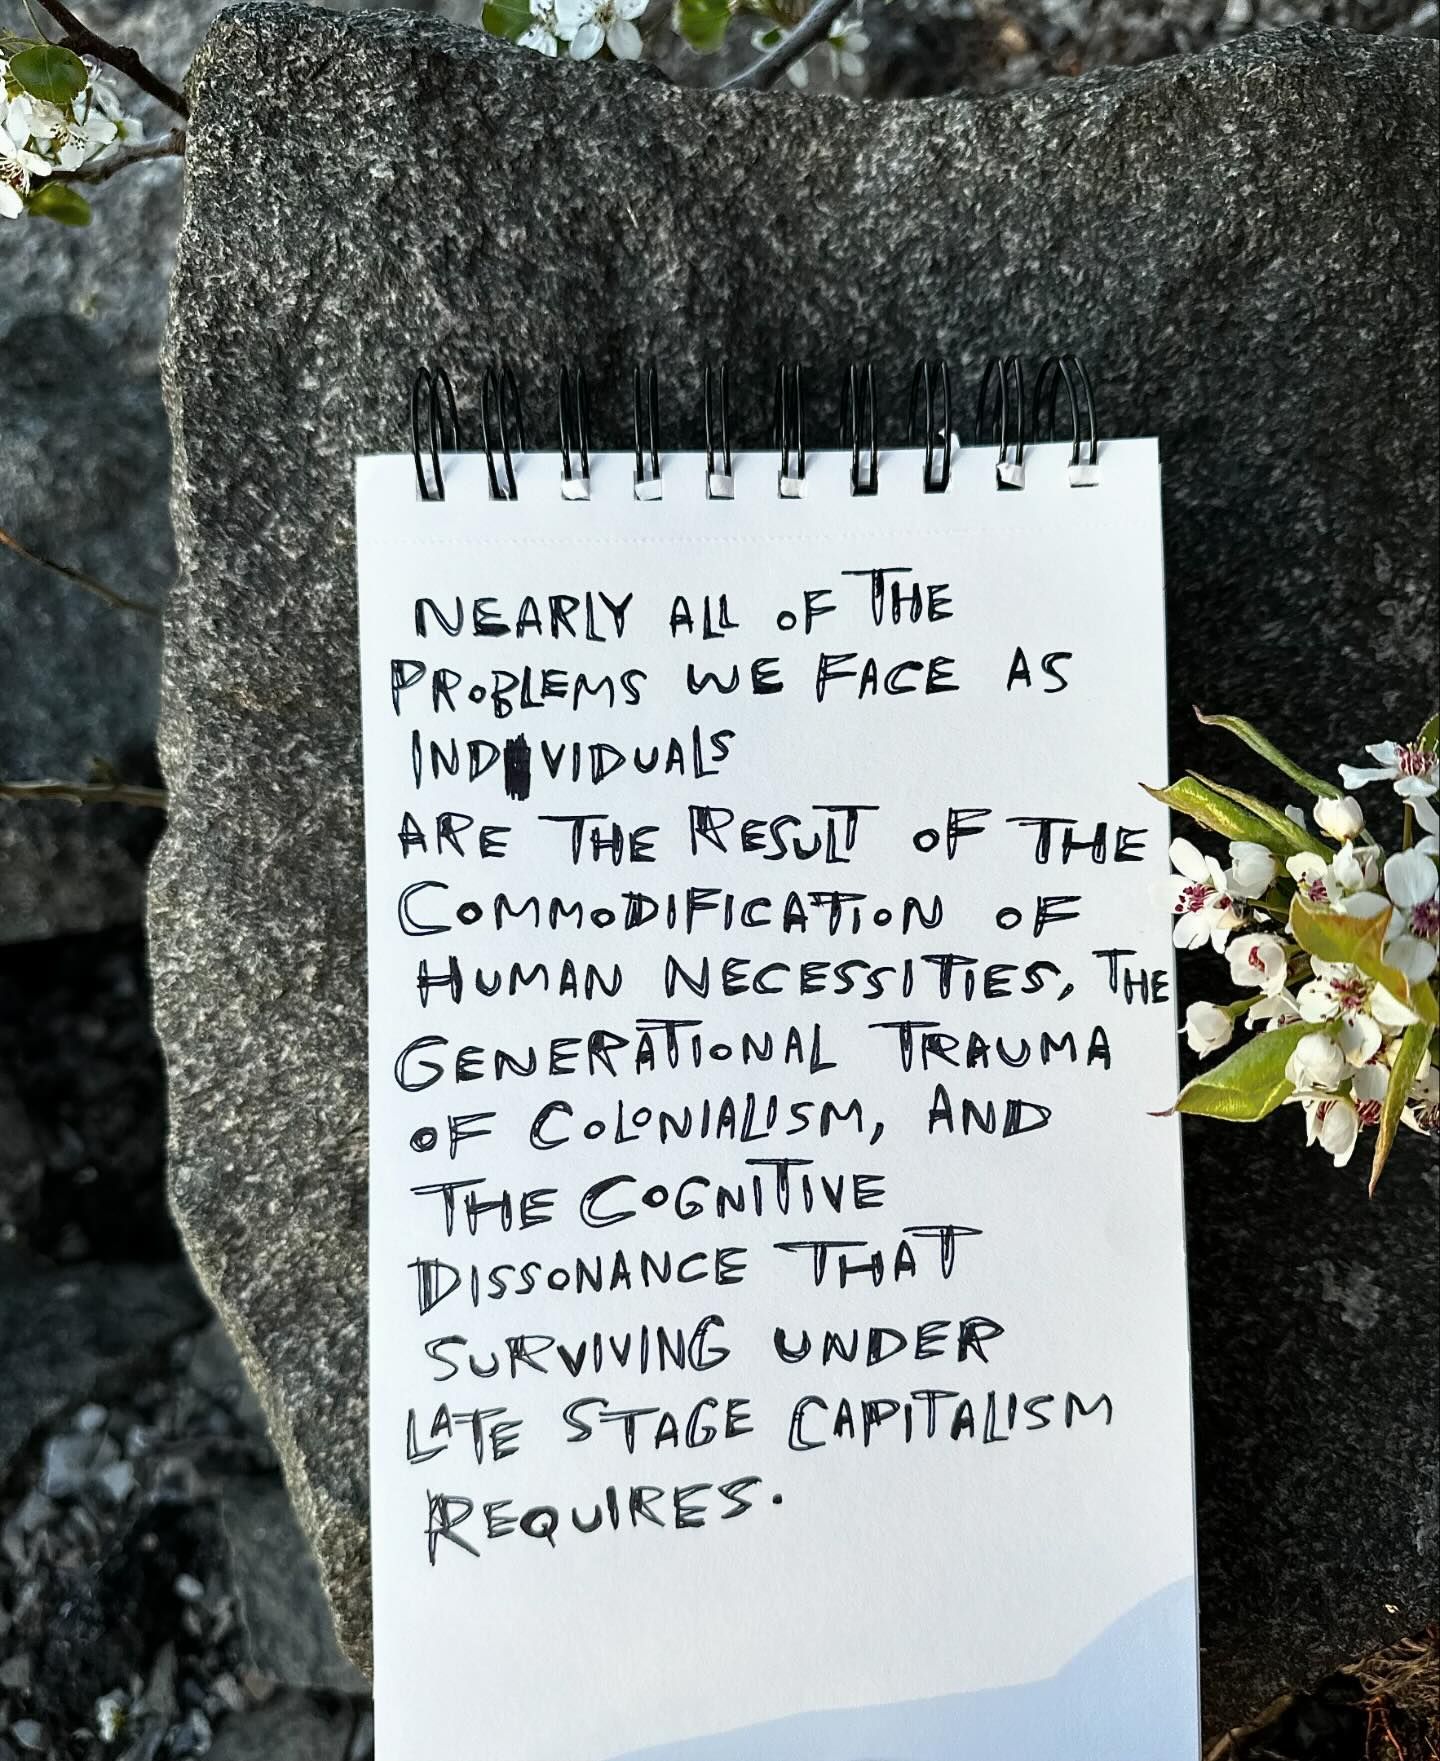 NEARLY ALL OF THE
PROBLEMS WE FACE AS
INDIVIDUALS
ARE THE RESULT OF THE
COMMODIFICATION OF
HUMAN NECESSITIES, THE
GENERATIONAL TRAUMA
OF COLONIALISM, AND
THE COGNITIVE
DISSONANCE THAT
SURVIVING UNDER
LATE STAGE CAPITALISM
REQUIRES.